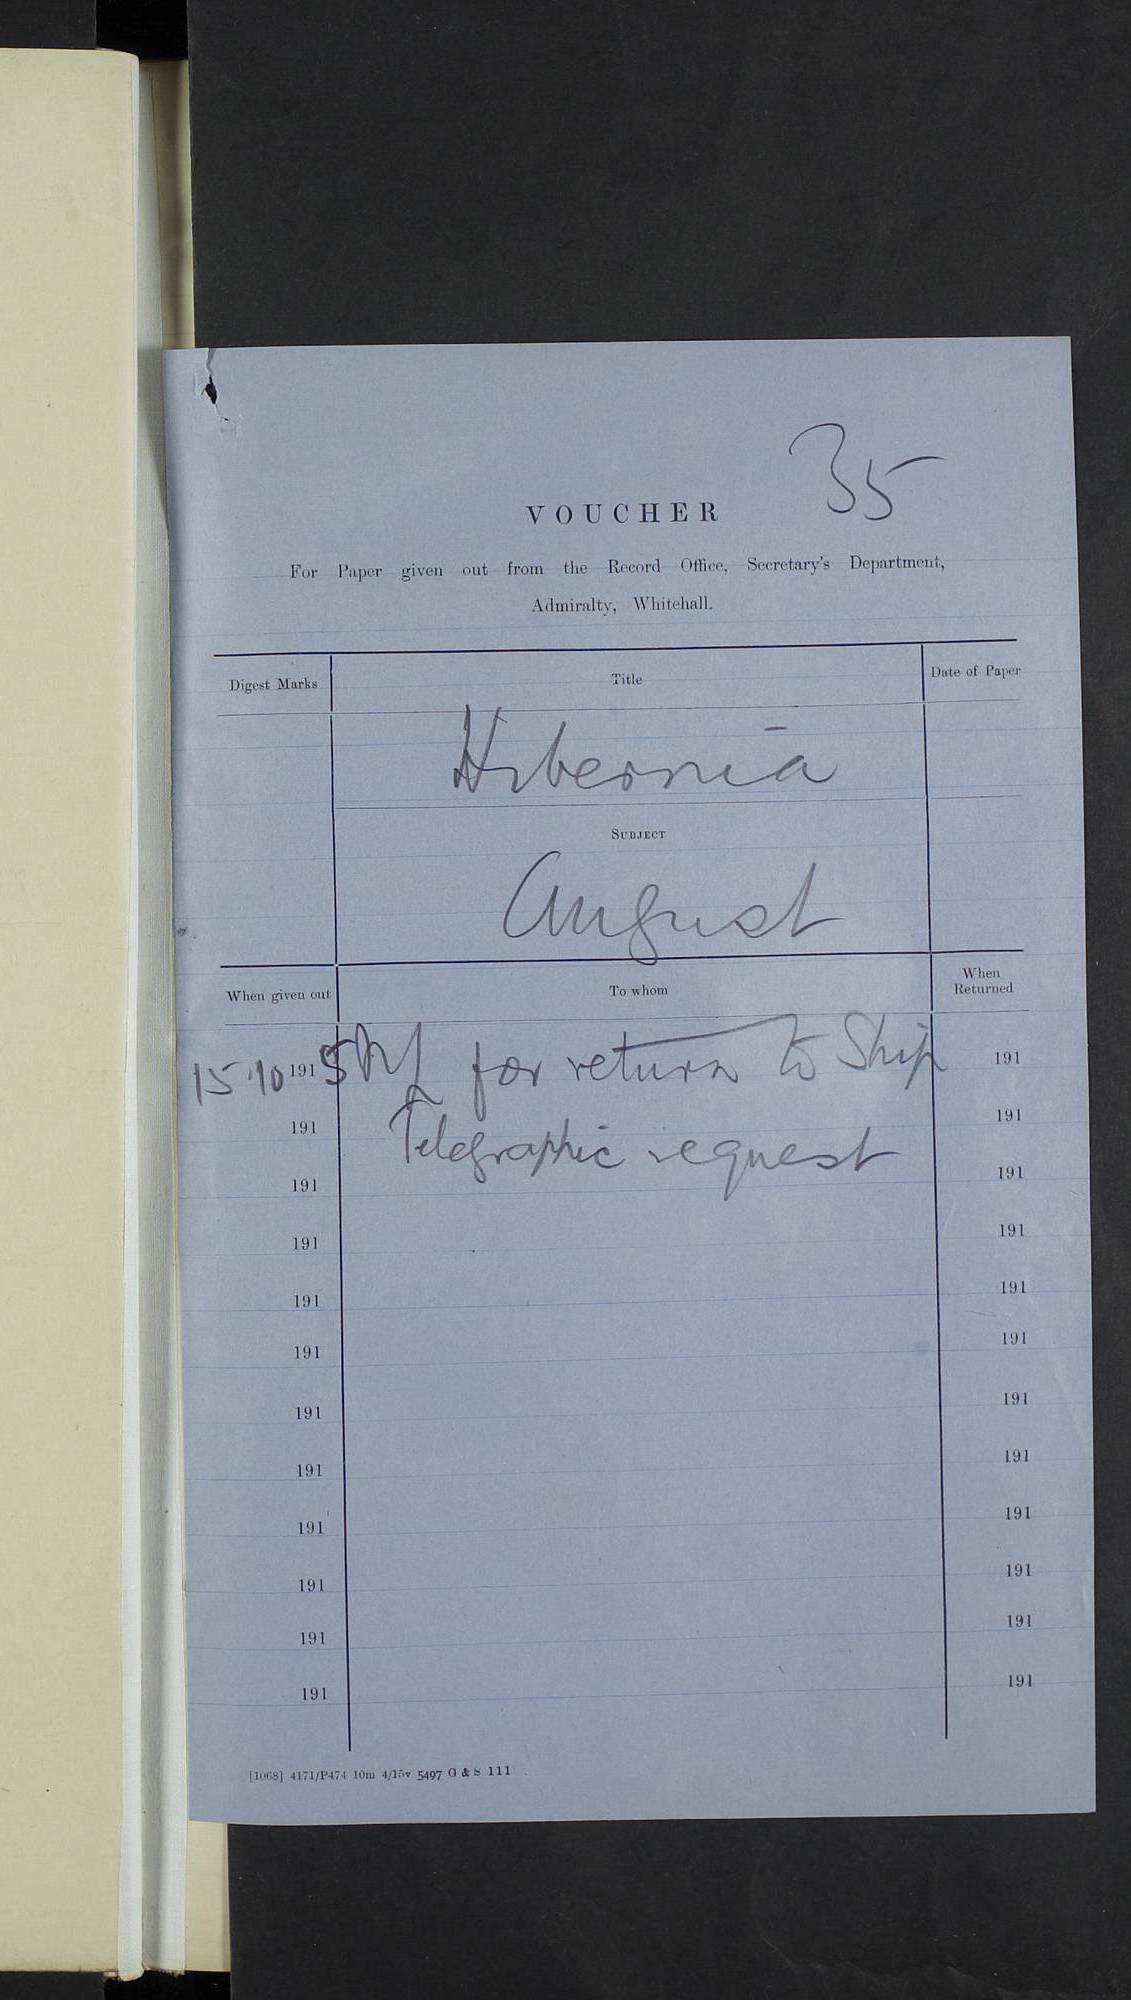 35
VOUCHER
For Paper given out from the Record Office, Secretary's Department,
Admiralty, Whitehall.
Digest Marks Title Date of Paper
Hibernia
SUBJECT
August
When given out To whom When Returned
15.10 1915 for return to Ship 191
191 Telegraphic request 191
191 191
191 191
191 191
191 191
191 191
191 191
191 191
191 191
191 191
191 191
[1068] 4171/P474 10m 4/15v 5497 G & S 111